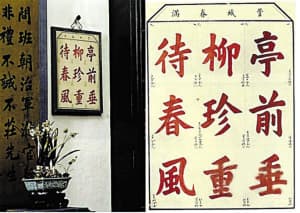 間班朝治軍涖官
非禮不誠不莊先生
亭前垂
柳珍重
待春風
管城春滿
亭前垂
柳珍重
待春風